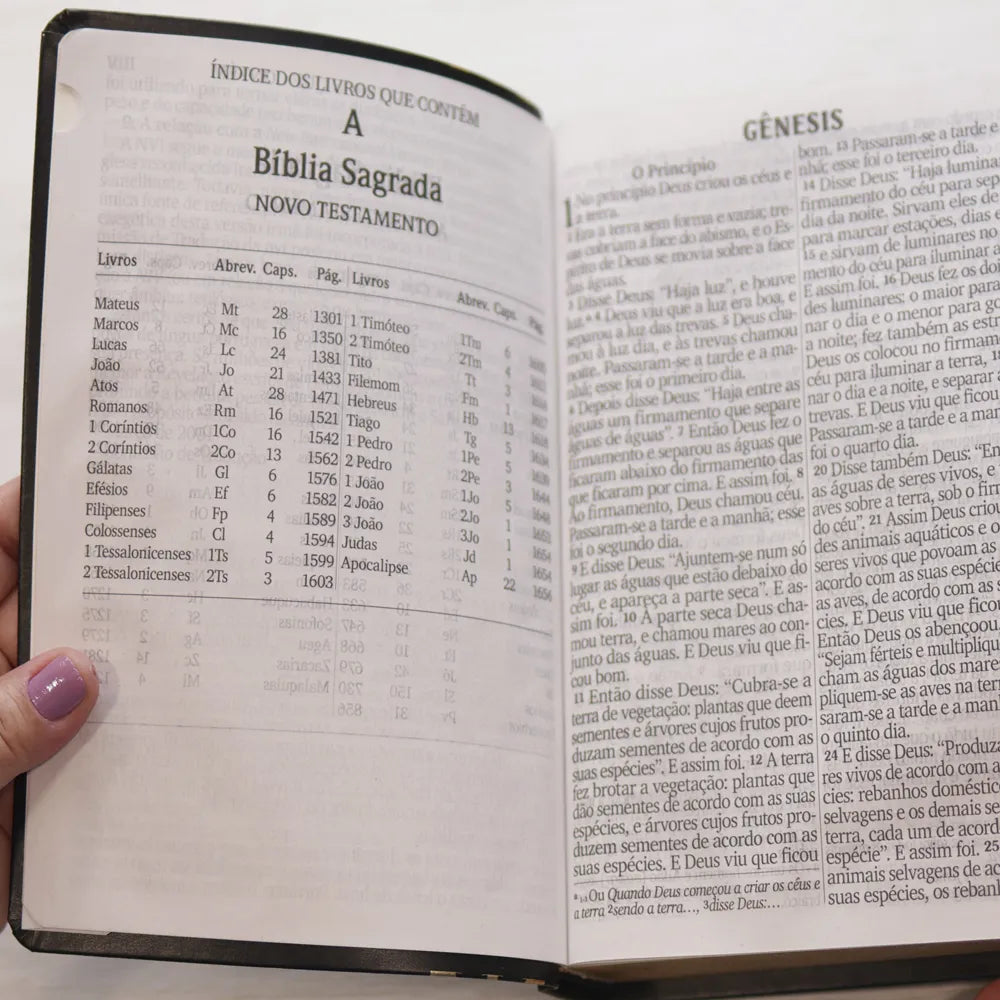 ÍNDICE DOS LIVROS QUE CONTÊM
A
Bíblia Sagrada
NOVO TESTAMENTO
Livros Abrev. Caps. Pág. Livros Abrev. Caps.
Mateus Mt 28 1301 1 Timóteo 1Tm 6
Marcos Mc 16 1350 2 Timóteo 2Tm 4
Lucas Lc 24 1381 Tito Tt 3
João Jo 21 1433 Filemom Fm 1
Atos At 28 1471 Hebreus Hb 13
Romanos Rm 16 1521 Tiago Tg 5
1 Coríntios 1Co 16 1542 1 Pedro 1Pe 5
2 Coríntios 2Co 13 1562 2 Pedro 2Pe 3
Gálatas Gl 6 1576 1 João 1Jo 5
Efésios Ef 6 1582 2 João 2Jo 1
Filipenses Fp 4 1589 3 João 3Jo 1
Colossenses Cl 4 1594 Judas Jd 1
1 Tessalonicenses 1Ts 5 1599 Apocalipse Ap 22 1656
2 Tessalonicenses 2Ts 3 1603
GÊNESIS
O Princípio
1 No princípio Deus criou os céus e
a terra.
2 Era a terra sem forma e vazia; tre-
vas cobriam a face do abismo, e o Es-
pírito de Deus se movia sobre a face
das águas.
3 Disse Deus: “Haja luz”, e houve
luz. 4 Deus viu que a luz era boa, e
separou a luz das trevas. 5 Deus cha-
mou à luz dia, e às trevas chamou
noite. Passaram-se a tarde e a ma-
nhã; esse foi o primeiro dia.
6 Depois disse Deus: “Haja entre as
águas um firmamento que separe
águas de águas”. 7 Então Deus fez o
firmamento e separou as águas que
ficaram abaixo do firmamento das
que ficaram por cima. E assim foi. 8
Ao firmamento, Deus chamou céu.
Passaram-se a tarde e a manhã; esse
foi o segundo dia.
9 E disse Deus: “Ajuntem-se num só
lugar as águas que estão debaixo do
céu, e apareça a parte seca”. E as-
sim foi. 10 À parte seca Deus cha-
mou terra, e chamou mares ao con-
junto das águas. E Deus viu que fi-
cou bom.
11 Então disse Deus: “Cubra-se a
terra de vegetação: plantas que deem
sementes e árvores cujos frutos pro-
duzam sementes de acordo com as
suas espécies”. E assim foi. 12 A terra
fez brotar a vegetação: plantas que
dão sementes de acordo com as suas
espécies, e árvores cujos frutos pro-
duzem sementes de acordo com as
suas espécies. E Deus viu que ficou
a 1.1 Ou Quando Deus começou a criar os céus e
a terra 2sendo a terra..., 3disse Deus:...
bom. 13 Passaram-se a tarde e
nhã; esse foi o terceiro dia.
14 Disse Deus: “Haja lumina
firmamento do céu para sep
dia da noite. Sirvam eles de
para marcar estações, dias e
15 e sirvam de luminares no
mento do céu para iluminar a
E assim foi. 16 Deus fez os doi
des luminares: o maior para
nar o dia e o menor para go
a noite; fez também as estre
Deus os colocou no firmam
céu para iluminar a terra,
nar o dia e a noite, e separar a
trevas. E Deus viu que ficou
Passaram-se a tarde e a man
foi o quarto dia.
20 Disse também Deus: “En
as águas de seres vivos, e
aves sobre a terra, sob o fir
do céu”. 21 Assim Deus criou
des animais aquáticos e o
seres vivos que povoam as
acordo com as suas espécie
as aves, de acordo com as s
cies. E Deus viu que ficou
Então Deus os abençoou,
“Sejam férteis e multipliqu
cham as águas dos mare
pliquem-se as aves na terra
saram-se a tarde e a manh
o quinto dia.
24 E disse Deus: “Produza
res vivos de acordo com a
cies: rebanhos doméstic
selvagens e os demais se
terra, cada um de acord
espécie”. E assim foi. 25
animais selvagens de ac
suas espécies, os rebanh